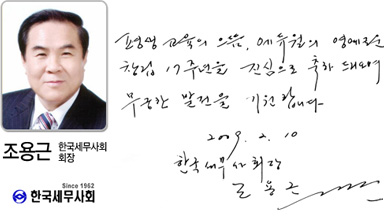 평생 교육의 으뜸, 에듀윌의 영예로운
창립 17주년을 진심으로 축하 드리며
무궁한 발전을 기원합니다
2009. 2. 10
한국세무사회장
조용근
조용근 한국세무사회
회장
Since 1962
한국세무사회